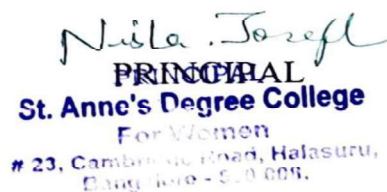 Nisla Josefl
PRINCIPAL
PRINCIPAL
St. Anne's Degree College
For Women
# 23, Cambridge Road, Halasuru,
Bangalore - 008.